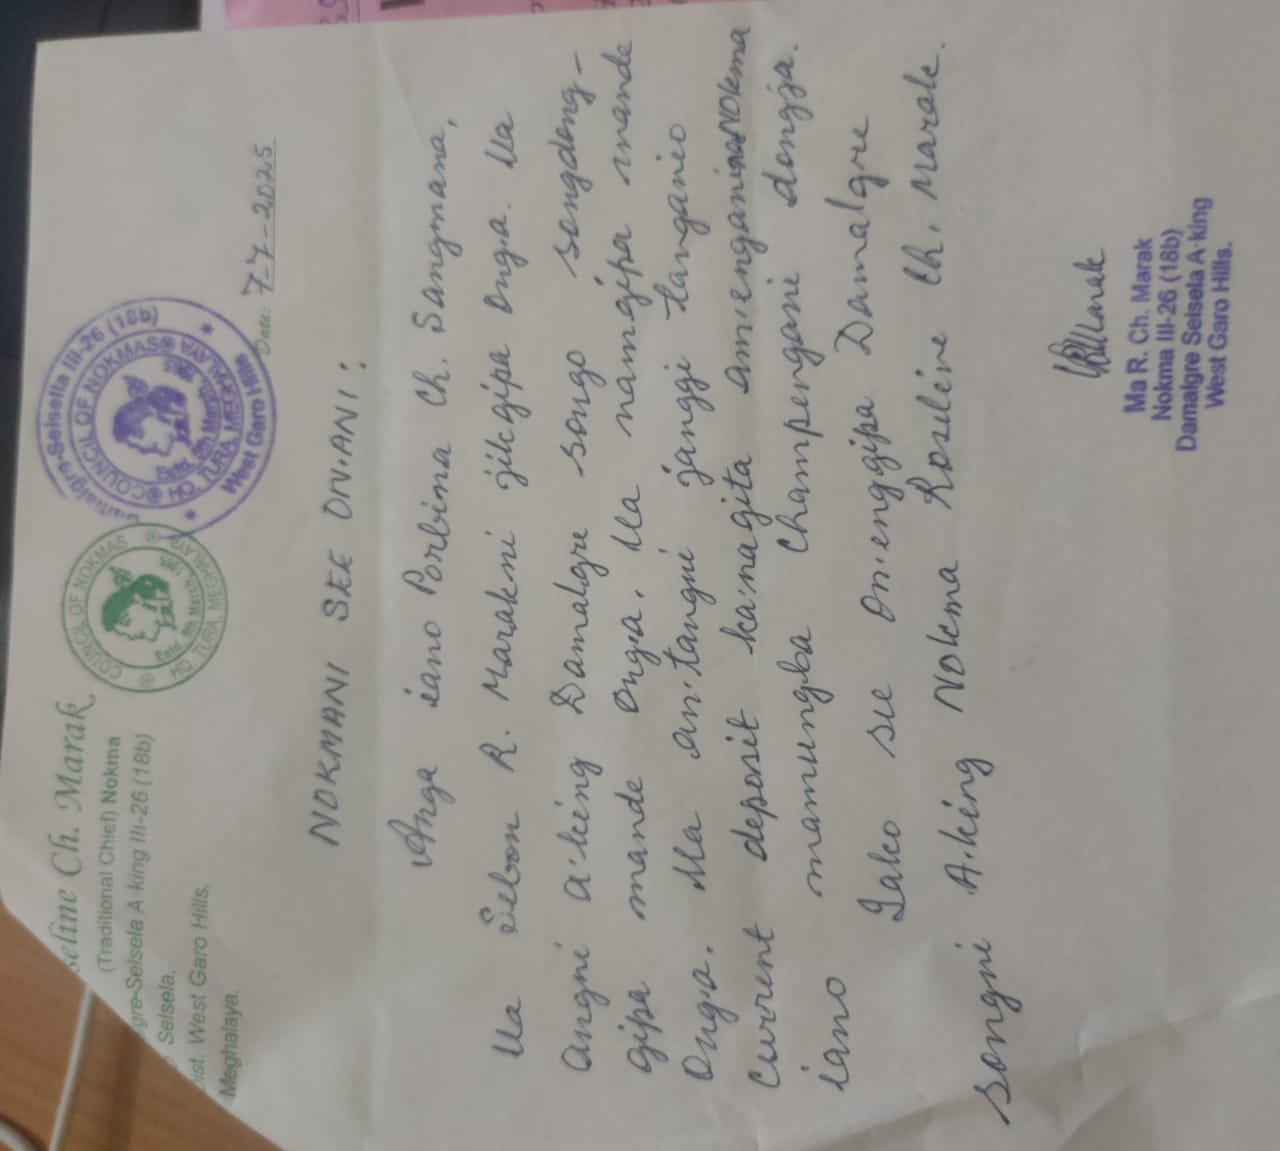 seline Ch. Marak
(Traditional Chief) Nokma
gre-Selsela A·king III-26 (18b)
Selsela,
ist. West Garo Hills,
Meghalaya.
COUNCIL OF NOKMAS
Estd. 5th March,
HQ. TURA, MEGHALAYA
Damalgre-Selsela III-26 (18b)
COUNCIL OF NOKMAS
Estd. 5th March,
HQ. TURA, MEGHALAYA
West Garo Hills
Date: 7-7-2025
NOKMANI SEE ON·ANI:
Anga iano Porbina Ch. Sangmana,
Ua Sebon R. Marakni jikgipa ong·a. Ua
angni a·king Damalgre songo songdong-
gipa mande ong·a. Ua namgipa mande
ong·a. Ua an·tangni janggi tanganio
current deposit ka·nagita am·enganina Nokma
iano mamungba champengani dongja.
Iako see on·enggipa Damalgre
songni A·king Nokma Roseline Ch. Marak.
Ma R. Ch. Marak
Nokma III-26 (18b)
Damalgre Selsela A·king
West Garo Hills.